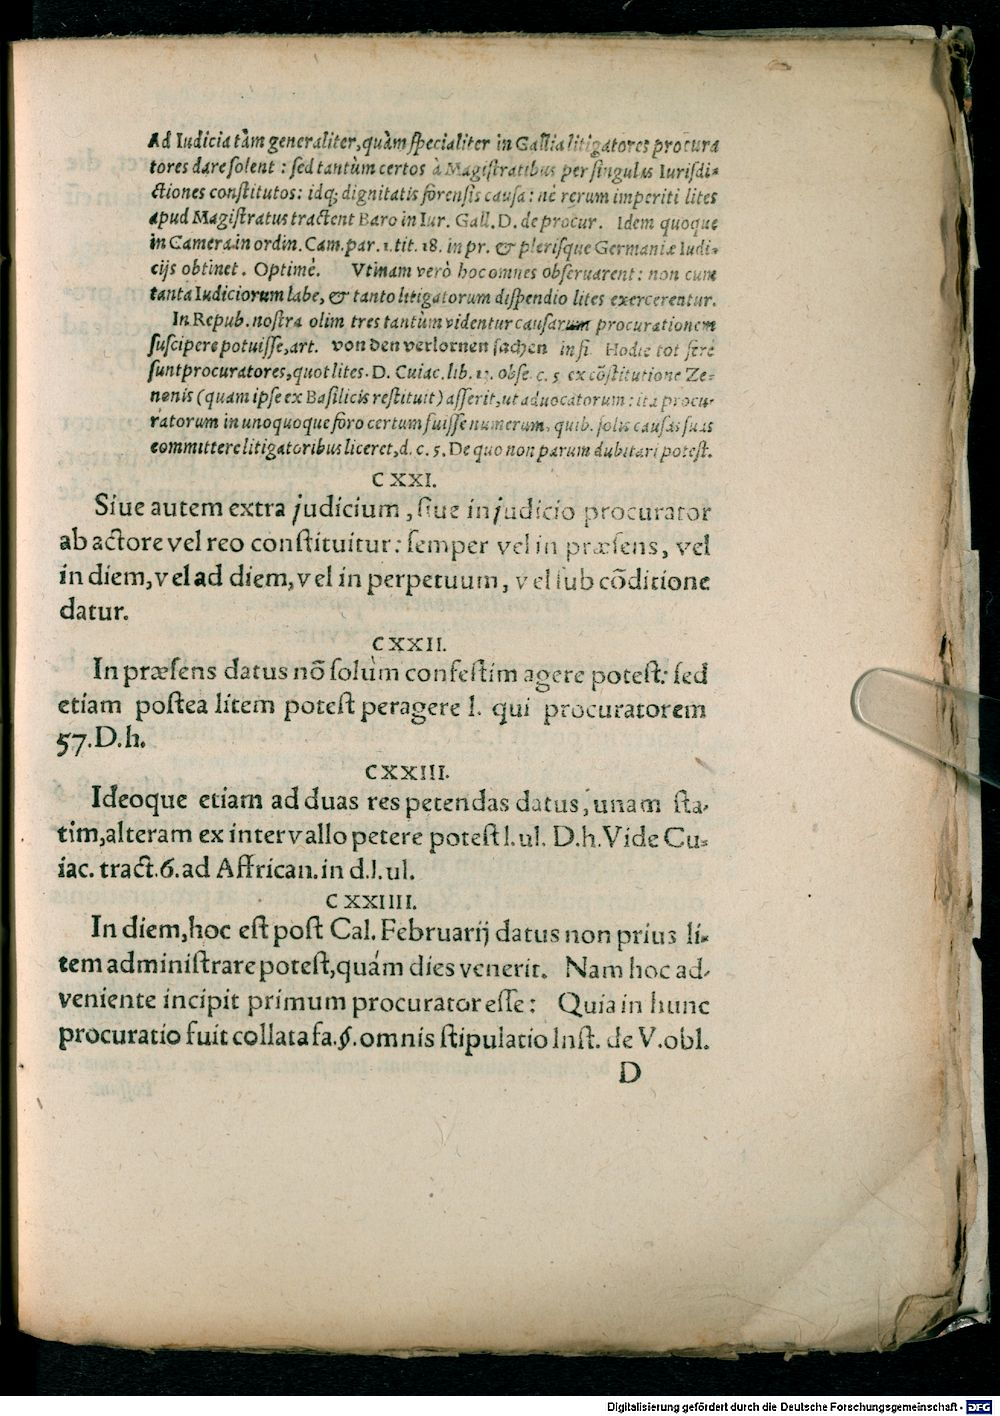 Ad Iudicia tàm generaliter, quàm specialiter in Gallia litigatores procura
tores dare solent : sed tantùm certos à Magistratibus per singulas Iurisdi-
ctiones constitutos: idq; dignitatis forensis causa : nè rerum imperiti lites
apud Magistratus tractent Baro in Iur. Gall. D. de procur. Idem quoque
in Camera in ordin. Cam. par. 1. tit. 18. in pr. & plerisque Germaniæ Iudi-
cijs obtinet. Optimè. Vtinam verò hoc omnes obseruarent : non cum
tanta Iudiciorum labe, & tanto litigatorum dispendio lites exercerentur.
In Repub. nostra olim tres tantùm videntur causarum procurationem
suscipere potuisse, art. von den verlornen sachen in fi Hodie tot ferè
sunt procuratores, quot lites. D. Cuiac. lib. 12. obse. c. 5 ex cõstitutione Ze-
nonis (quam ipse ex Basilicis restituit) asserit, ut aduocatorum : ita procu-
ratorum in unoquoque foro certum fuisse numerum, quib. solis causas suas
committere litigatoribus liceret, d. c. 5. De quo non parum dubitari potest.
CXXI.
Siue autem extra judicium, siue in judicio procurator
ab actore vel reo constituitur: semper vel in præsens, vel
in diem, vel ad diem, vel in perpetuum, vel sub cõditione
datur.
CXXII.
In præsens datus nõ solùm confestim agere potest: sed
etiam postea litem potest peragere l. qui procuratorem
57. D. h.
CXXIII.
Ideoque etiam ad duas res petendas datus, unam sta-
tim, alteram ex intervallo petere potest l. ul. D. h. Vide Cu-
iac. tract. 6. ad Affrican. in d. l. ul.
CXXIIII.
In diem, hoc est post Cal. Februarij datus non prius li-
tem administrare potest, quám dies venerit. Nam hoc ad-
veniente incipit primum procurator esse: Quia in hunc
procuratio fuit collata fa. §. omnis stipulatio Inst. de V. obl.
D
Digitalisierung gefördert durch die Deutsche Forschungsgemeinschaft - DFG